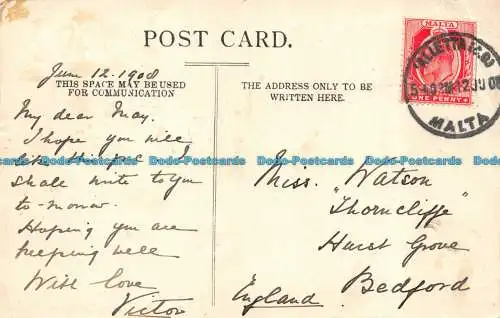 POST CARD.
June 12. 1908
THIS SPACE MAY BE USED
FOR COMMUNICATION
THE ADDRESS ONLY TO BE
WRITTEN HERE.
MALTA
ONE PENNY
VALLETTA
5.45PM 12 JU 08
MALTA
My dear May.
I hope you will
like this p.c. I
shall write to you
to-morrow.
Hoping you are
keeping well
With love
Victor
Miss. Watson
"Thorncliffe"
Hurst Grove
Bedford
England
Bords-Postcards Bords-Postcards Bords-Postcards